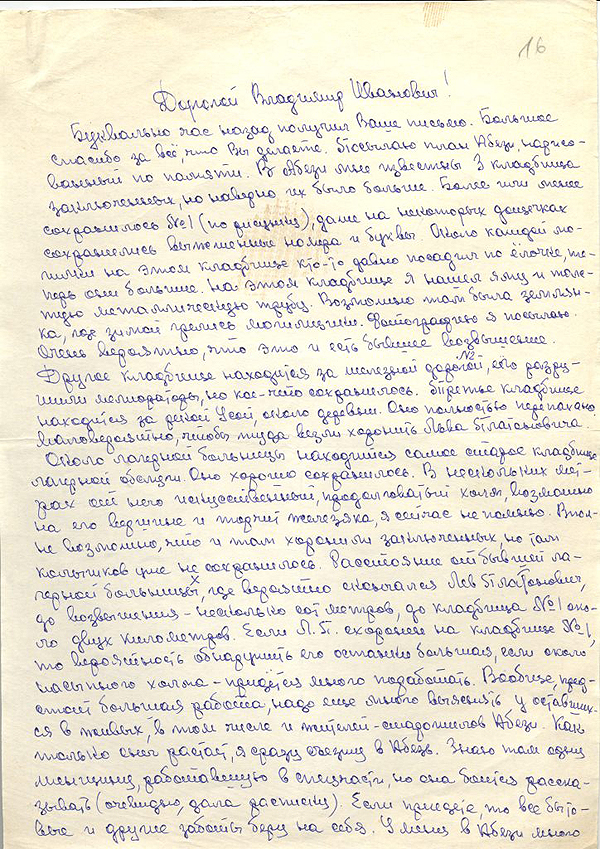 16
Дорогой Владимир Иванович!
Буквально час назад получил Ваше письмо. Большое
спасибо за всё, что Вы делаете. Посылаю план Абези, нарисо-
ванный по памяти. В Абези мне известны 3 кладбища
заключенных, но наверно их было больше. Более или менее
сохранилось №1 (по рисунку), даже на некоторых дощечках
сохранились выжженные номера и буквы. Около каждой мо-
гилки на этом кладбище кто-то давно посадил по ёлочке, те-
перь они большие. На этом кладбище я нашел яму и толс-
тую металлическую трубу. Возможно там была землян-
ка, где зимой грелись могильщики. Фотографию я посылаю.
Очень вероятно, что это и есть бывшее возвышение.
Другое кладбище находится за железной дорогой, №2 его разру-
шили мелиораторы, но кое-что сохранилось. Третье кладбище
находится за рекой Усой, около деревни. Оно полностью перепахано.
Маловероятно, чтобы туда везли хоронить Льва Платоновича.
Около лагерной больницы находится самое старое кладбище
лагерной обслуги. Оно хорошо сохранилось. В нескольких мет-
рах от него искусственный, продолговатый холм, возможно
на его вершине и торчит железяка, я сейчас не помню. Впол-
не возможно, что и там хоронили заключенных, но там
колышков уже не сохранилось. Расстояние от бывшей ла-
герной больницы х, где вероятно скончался Лев Платонович,
до возвышения - несколько сот метров, до кладбища №1 око-
ло двух километров. Если Л.П. схоронен на кладбище №1,
то вероятность обнаружить его останки большая, если около
насыпного холма - придётся много поработать. Вообще, пред-
стоит большая работа, надо еще много выяснить у оставших-
ся в живых, в том числе и жителей-старожилов Абези. Как
только снег растает, я сразу съезжу в Абезь. Знаю там одну
женщину, работавшую в спецчасти, но она боится расска-
зывать (очевидно, дала расписку). Если приедете, то все быто-
вые и другие заботы беру на себя. У меня в Абези много